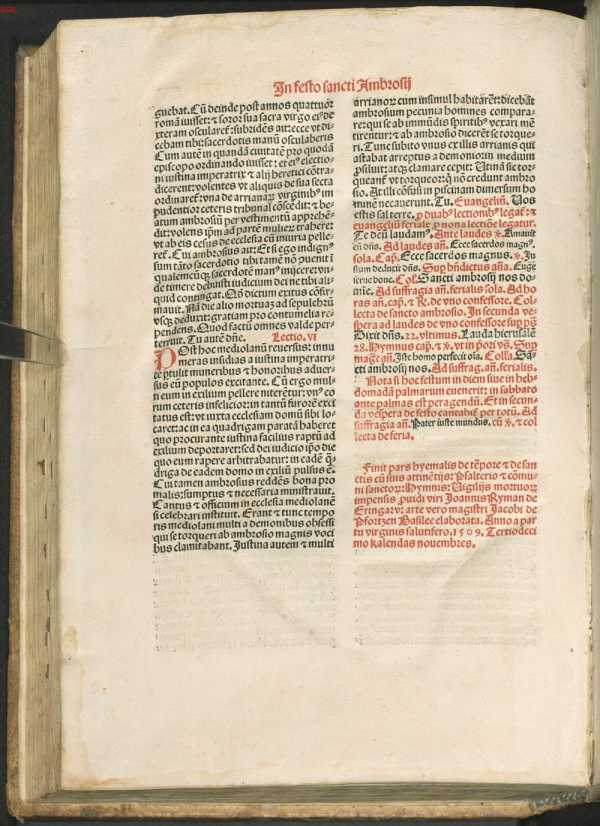 In festo sancti Ambrosij
guebat. Cū deinde post annos quattuor
romā iuisset: ⁊ soror sua sacra virgo eiꝰ de-
xteram oscularet͛: subridēs ait: ecce vt di-
cebam tibi: sacerdotis manū oscularis
Cum autē in quandā ciuitatē pro quodā
episcopo ordinando iuisset: et eiꝰ electio-
ni iustina imperatrix ⁊ alij heretici cōtra-
dicerent: volentes vt aliquis de sua secta
ordinaret͛: vna de arrianaꝝ virginibꝰ im
pudentior ceteris tribunal cōscēdit: ⁊ be-
atum ambrosiū per vestimentū apprehē-
dit: volens ip̄m ad partē mulieꝝ trahere:
vt ab eis cesus de ecclesia cū iniuria pelle-
ret͛. Cui ambrosius ait: Et si ego indignꝰ
sum tāto sacerdotio tibi tamē nō ꝯuenit ī
qualemcūqꝫ sacerdotē manꝰ inijcere: vn-
de timere debuisti iudicium dei ne tibi ali-
quid contingat. Qḋ dictum exitus cōfir-
mauit. Nā die alio mortuaꝫ ad sepulchrū
vsqꝫ deduxit: gratiam pro contumelia re-
pendens. Quod factū omnes valde per-
terruit. Tu autē dn̄e. Lectio. vi
POst hoc mediolanū reuersus: innu
meras insidias a iustina imperatri-
ce ꝑtulit muneribus ⁊ honoribus aduer-
sus eū populos excitante. Cū ergo mul-
ti eum in exilium pellere niterēt͛: vnꝰ eo
rum ceteris infelicior: in tantū furorē exci
tatus est: vt iuxta ecclesiam domū sibi lo-
caret: ac in ea quadrigam paratā haberet
quo procurante iustina facilius raptū ad
exilium deportaret: sed dei iudicio ip̄o die
quo eum rapere arbitrabatur: in eadē q̄-
driga de eadem domo in exiliū pulsus ē.
Cui tamen ambrosius reddēs bona pro
malis: sumptus ⁊ necessaria ministrauit.
Cantus ⁊ officium in ecclesia mediolanē
si celebrari instituit. Erant ⁊ tunc tempo
ris mediolani multi a demonibus obsessi
qui se torqueri ab ambrosio magnis voci
bus clamitabant. Iustina autem ⁊ multi
arrianoꝝ cum insimul habitarēt: dicebāt
ambrosium pecunia homines compara-
re: qui se ab immūdis spiritibꝰ vexari mē
tirentur: ⁊ ab ambrosio dicerēt se torque-
ri. Tunc subito vnus ex illis arrianis qui
astabat arreptus a demonio: in medium
ꝓsiluit: atqꝫ clamare cepit: Utinā sic tor-
queant͛ vt torqueor: qͥ nō credunt ambro
sio. At illi cōfusi in piscinam dimersum ho
minē necauerunt. Tu. Euangeliū. Uos
estis sal terre. ꝓ duabꝰ lectionibꝰ legat͛: ⁊
euangeliū feriale ꝓ nona lectiōe legatur.
Te deū laudamꝰ. Ante laudes ꝟ. Amauit
eū dn̄s. Ad laudes an̄. Ecce sacerdos magnꝰ.
sola. Cap̄. Ecce sacerdos magnus. ꝟ. Iu
stum deduxit dn̄s. Sup bn̄dictus an̄a. Euge
serue bone. Col. Sancti ambrosij nos do-
mie. Ad suffragia an̄. ferialis sola. Ad ho
ras an̄. cap̄. ⁊ R̄. de vno confessore. Col-
lecta de sancto ambrosio. In secunda ve-
spera ad laudes de vno confessore sup pṡ
Dixit dn̄s. 22. vltimus. Lauda hierusalē
28. Hymnus cap̄. ⁊ ꝟ. vt in pori vṡ. Sup
mag̃t an̄. Iste homo perfecit oīa. Colla. Sā-
cti ambrosij nos. Ad suffrag. an̄. ferialis.
Nota si hoc festum in diem siue in heb-
domadā palmarum euenerit: in sabbato
ante palmas est peragendū. Et in secun-
da vespera de festo cantabit͛ per totū. Ad
suffragia an̄. Pater iuste mundus. cū ꝟ. ⁊ col
lecta de feria.
Finit pars hyemalis de tēpore ⁊ de san
ctis cū suis attinētijs: Psalterio ⁊ cōmu-
ni sanctoꝝ: Hymnis: Uigilijs mortuoꝝ
impensis ꝓuidi viri Joannis Ryman de
Oringaw: arte vero magistri Jacobi de
Pfortzen Basilee elaborata. Anno a par
tu virginis salutifero. 1509. Tertiodeci
mo kalendas nouembres.